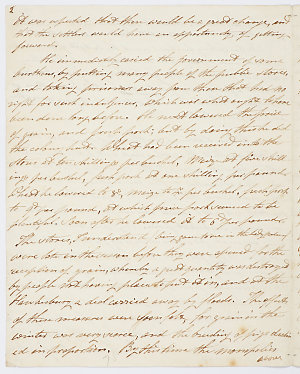 2
it was expected that there would be a great change, and
that the settlers would have an opportunity of getting
forward.
He immediately eased the government of some
burthens, by putting many people off the public Stores,
and taking prisoners away from them that had no
right for such indulgences, which was what ought to have
been done long before. He next lowered the price
of grain, and fresh pork; but by doing this he did
the colony hurt. Wheat had been received into the
Stores at ten shillings per bushel, Maize at five shill-
ings per bushel, fresh pork at one shilling per pound.
Wheat he lowered to 8/, maize to 4/ per bushel, fresh pork
to 9d per pound, at which price pork seemed to be
plentiful. Soon after he lowered it to 6d per pound.
The Stores, I understand, being
were late in the season before they were opened for the
reception of grain, whereby a great quantity was destroyed
by people not having places to put it in, and at the
Hawkesbury a deal carried away by floods. The effects
of these measures were soon felt, for grain in the
winter was very scarce, and the breeding of pigs declin-
ed in proportion. By this time the monopolies
were